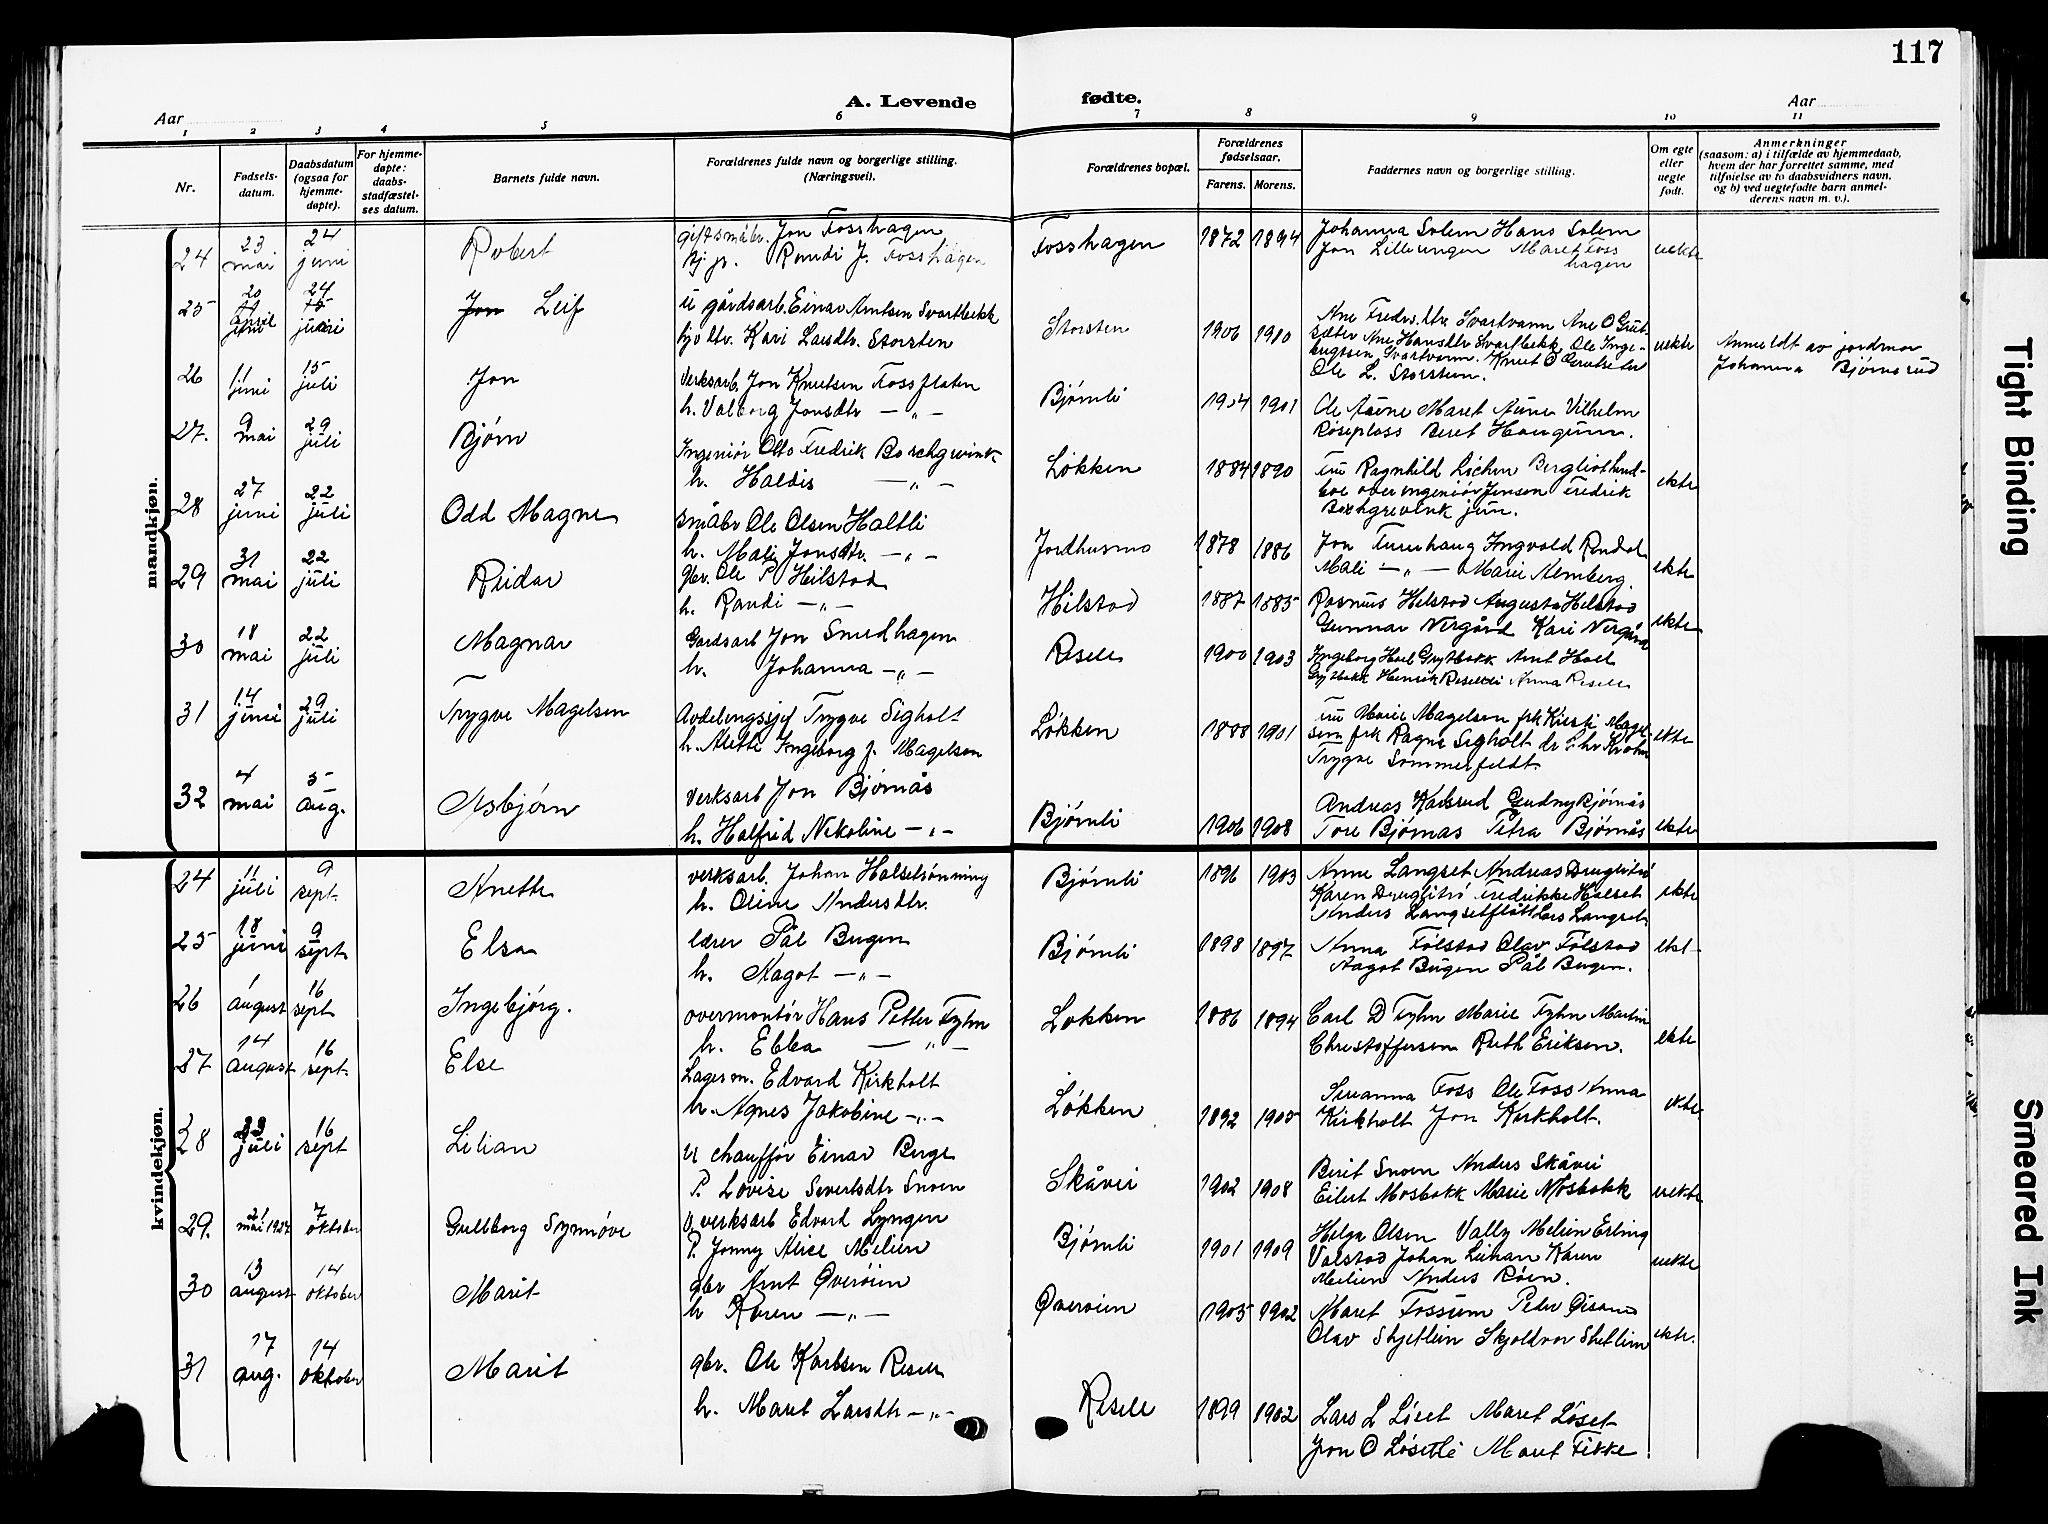 117
A. Levende fødte.
Aar
Aar
1 2 3 4 5 6 7 8 9 10 11
Nr.
Fødsels-
datum.
Daabsdatum
(ogsaa for
hjemme-
døpte).
For hjemme-
døpte:
daabs-
stadfæstel-
ses datum.
Barnets fulde navn.
Forældrenes fulde navn og borgerlige stilling.
(Næringsvei).
Forældrenes bopæl.
Forældrenes
fødselsaar.
Farens. Morens.
Faddernes navn og borgerlige stilling.
Om egte
eller
uegte
født.
Anmerkninger
(saasom: a) i tilfælde av hjemmedaab,
hvem der har forrettet samme, med
tilføielse av to daabsvidners navn,
og b) ved uegtefødte barn anmel-
derens navn m. v.).
mandkjøn.
24 23 mai 24 juni Robert
Jon Fosshagen
Randi J. Fosshagen
Fosshagen 1872 1894
Johanna Solem Hans Solem
Jon Lilleungen Maret Foss
hagen
uekte
25 20 april 24 juni Leif
u gårdsarb. Einar Arntsen Svartbekk
Kari Larsdtr. Storsten
Storsten 1906 1910
Ole L. Storsten.
uekte
Anmeldt av jordmor
Johanna Bjørnsrud
26 11 juni 15 juli Jon
Verksarb. Jon Knutsen Fossflaten
h. Valborg Jonsdtr — „ —
Bjørnli 1904 1901
Ole Aune Maret Aune Vilhelm
Røseplass Beret Haugum.
27. 9 mai 29 juli Bjørn
Ingeniør Otto Fredrik Borchgrevink
h. Haldis — „ —
Løkken 1884 1890
Fru Ragnhild Lochen Bergliot Lund-
boe overingeniør Jensen Fredrik
Borchgrevink jun.
ekte
28 27 juni 22 juli Odd Magne
småbr Ole Olsen Haltli
h. Mali Jonsdtr. — „ —
Jordhusmo 1878 1886
Jon Furuhaug Ingvald Rindal
Mali — „ — Marie Almberg.
ekte
29 31 mai 22 juli Reidar
gbr. Ole P. Hilstad
h. Randi — „ —
Hilstad 1887 1885
Rasmus Hilstad Augusta Hilstad
Gunnar Vergård Kari Vergård
ekte
30 18 mai 22 juli Magnar
Gardsarb Jon Smedhagen
h. Johanna — „ —
Resell 1900 1903
Ingeborg Hoel Grytbakk Arnt Hoel
Grytbakk Henrik Resell Anna Resell
31 14 juni 29 juli Trygve Magelsen
Avdelingssjef Trygve Sigholt
h. Alethe Ingeborg f. Magelsen
Løkken 1888 1901
Fru Marie Magelsen frk Kirsti Magel
sen frk Ragna Sigholt dr Chr Krohn
Trygve Sommerfeldt.
ekte
32 4 mai 5 aug. Asbjørn
Verksarb Jon Bjørnås
h. Halfrid Nikoline — „ —
Bjørnli 1906 1908
Andreas Karlsrud Gudny Bjørnås
Tore Bjørnås Petra Bjørnås
ekte
kvindekjøn.
24 11 juli 9 sept. Anette
verksarb. Johan Halsetrønning
h. Oline Andersdtr.
Bjørnli 1896 1903
Anne Langset Andreas Druglitrø
Karen Druglitrø Fredrikke Halset
Anders Langsetflått Lars Langset.
ekte
25 18 juni 9 sept. Elsa
lærer Pål Bugen
h. Aagot — „ —
Bjørnli 1898 1897
Anna Følstad Olav Følstad
Aagot Bugen Pål Bugen.
ekt-
26 1 august 16 sept Ingebjørg.
overmontør Hans Petter Fyhn
h. Ebba — „ —
Løkken 1886 1894
Carl D Fyhn Marie Fyhn Martin
Christoffersen Ruth Eriksen.
ekte
27 14 august 16 sept. Else
Lagerm. Edvard Kirkholt
h. Agnes Jakobine — „ —
Løkken 1892 1905
Susanna Foss Ole Foss Anna
Kirkholt Jon Kirkholt.
ekte
28 23 juli 16 sept Lilian
u chauffør Einar Berge
P. Lovise Sivertsdtr Snoen
Skåvei 1902 1908
Berit Snoen Anders Skåvei
Eilert Mosbakk Marie Mosbakk
uekte
29. 21 mai 1927 7 oktober Gullborg Synnøve
U. verksarb Edvard Lyngen
P. Jonny Alise Melien
Bjørnli 1901 1909
Helga Olsen Vally Melien Erling
Valstad Johan Lishan Karen
Melien Anders Røen.
uekte
30 13 august 14 oktober Marit
gbr Arnt Øverøien
h Karen — „ —
Øverøien 1905 1902
Maret Fossum Peder
Olav Skjetlein Skjoldvor Skjetlein
ekte.
31 17 aug. 14 oktober Marit
gbr. Ole Karlsen Resell
h. Maret Larsdtr — „ —
Resell 1899 1902
Lars L Løset Maret Løset
Jon O Løsetli Maret Fikke
Tight Binding
Smeared Ink